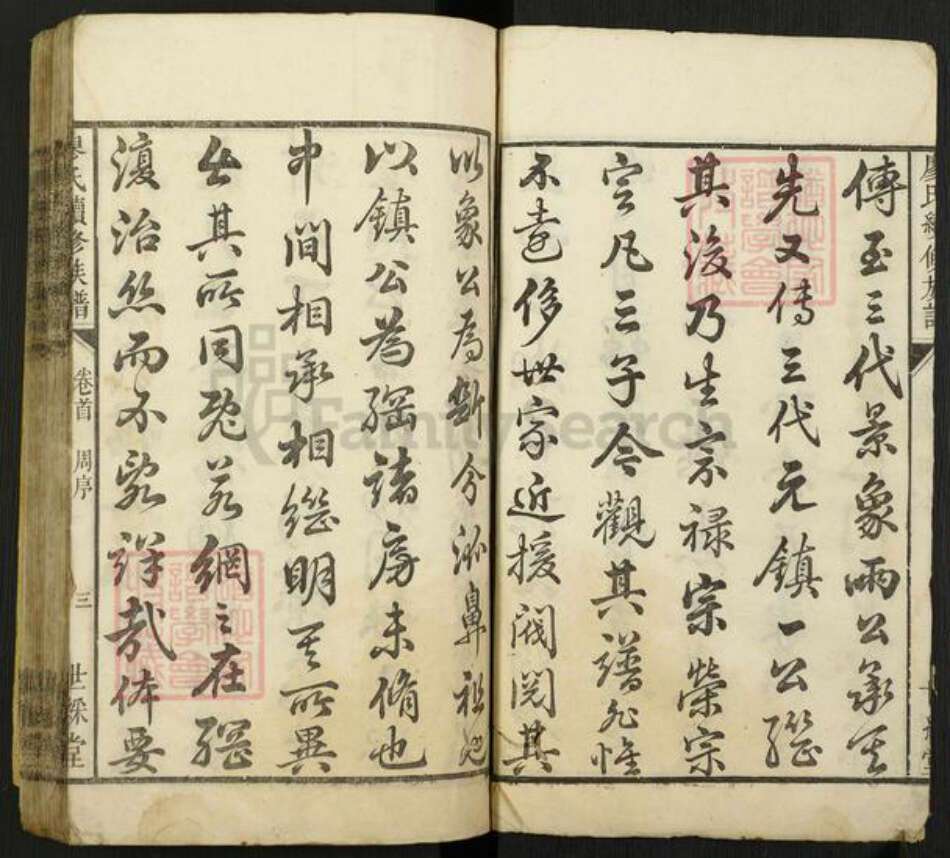 廖氏續修族譜
傳至三代景象兩公承其
先又傳三代元鎮一公繼
其後乃生宗祿宗榮宗
宣凡三子今觀其譜不惟
不遠侈世家近援閥閱其
以象公為斷分派鼻祖
以鎮公為綱諸房未脩也
中間相承相繼明其所異
其所同既若網之在綱
復治然而不紊詳哉体要
廖氏續修族譜 卷首 周序 三 世綵堂
FamilySearch